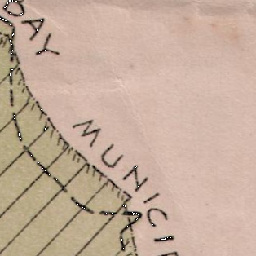 BAY
MUNICIP